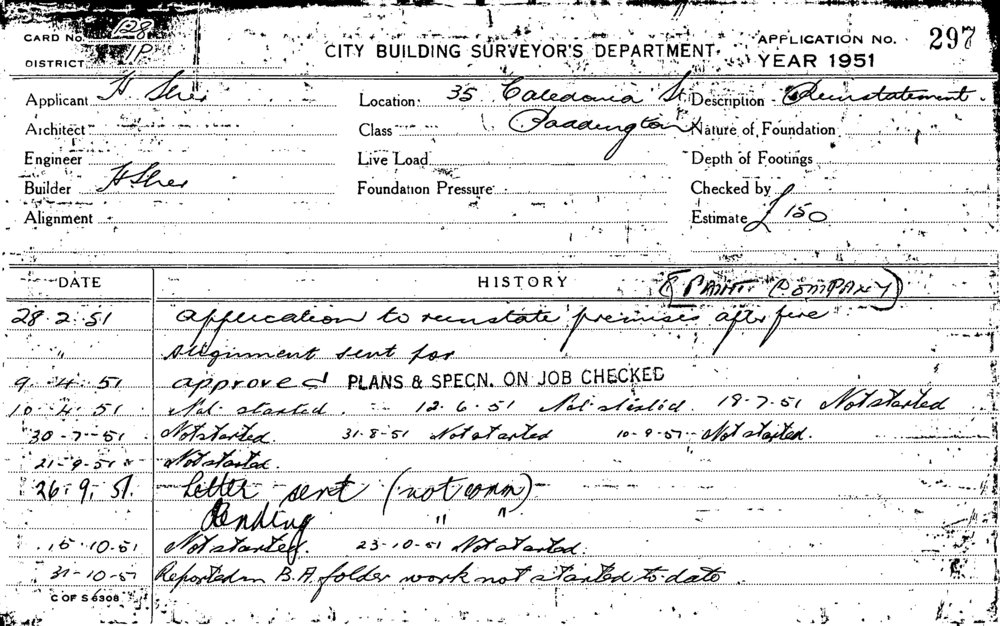 CARD No. 128
DISTRICT 1P
CITY BUILDING SURVEYOR'S DEPARTMENT.
APPLICATION NO. 297
YEAR 1951
Applicant H Sher Location: 35 Caledonia St Description Reinstatement
Architect Class Paddington Nature of Foundation
Engineer Live Load Depth of Footings
Builder H Sher Foundation Pressure Checked by
Alignment Estimate £150
DATE HISTORY (PAINT COMPANY)
28 2. 51 Application to reinstate premises after fire
" Alignment sent for
9. 4. 51 approved PLANS & SPECN. ON JOB CHECKED
10. 4. 51 Not started. 12. 6. 51 Not started. 19-7.51 Not started
30-7-51 Not started. 31-8-51 Not started 10-9-51 Not started.
21-9-51 Not started.
26. 9. 51. Letter sent (not comm)
Pending " "
15-10-51 Not started. 23-10-51 Not started.
31-10-51 Reported in B.A folder work not started to date.
C OF S 6308